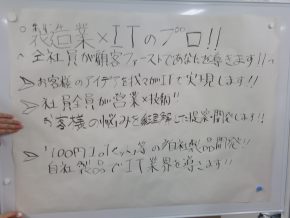 製造業×ITのプロ!!
全社員が顧客ファーストであなたを導きます!!
お客様のアイデアを代々がITで実現します!!
社員全員が営業×技術"
お客様の悩みを理解した提案開発します!!
100円 等の自社製品開発!!
自社製品でIT業界を導きます!!